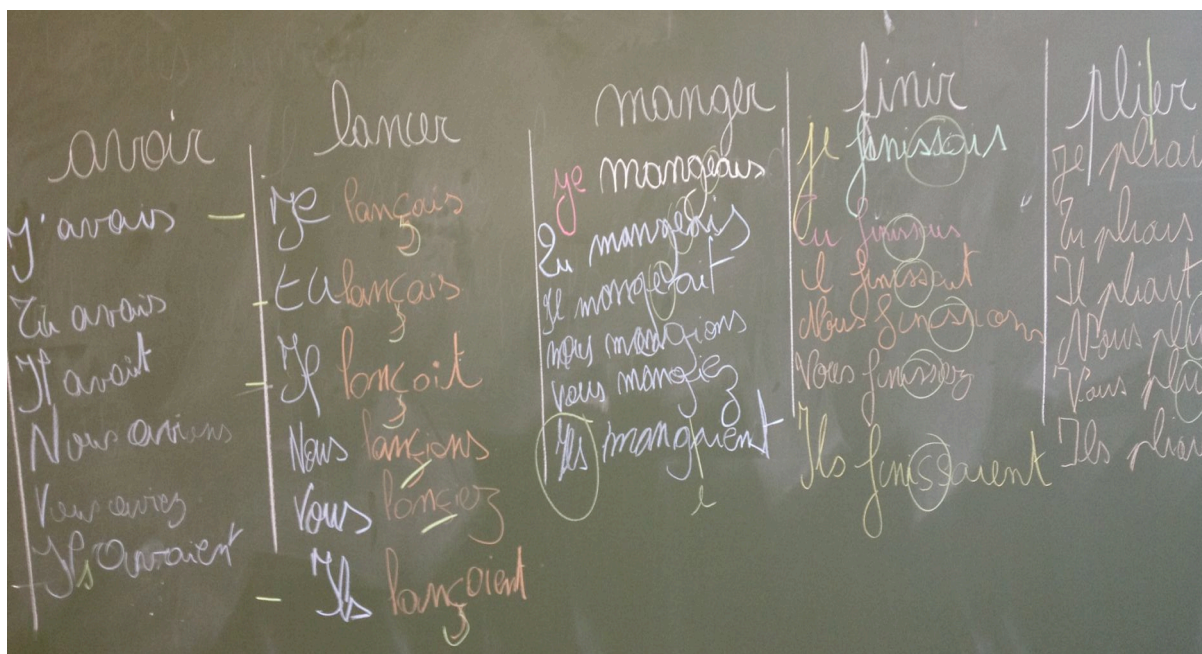 avoir
j'avais
Tu avais
Il avait
Nous avions
Vous aviez
Ils avaient
lancer
Je lançais
tu lançais
Il lançait
Nous lançions
Vous lanciez
Ils lançaient
manger
je mangeais
Tu mangeais
Il mangeait
nous mangions
vous mangiez
Ils mangaient
e
finir
je finissais
tu finissais
il finissait
Nous finissions
Vous finissiez
Ils finissaient
plier
je pliais
Tu pliais
Il pliait
Nous
Vous
Ils